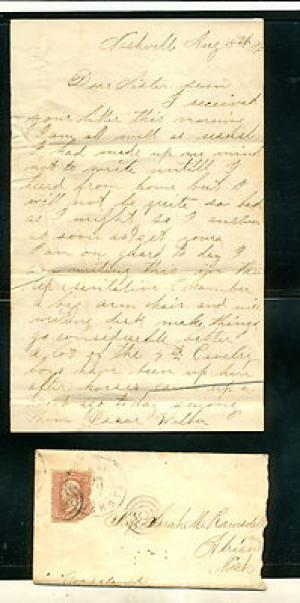 Nashville Aug 5th
Dear Sister
I received
your letter this morning
I am all well as usual
I had made up my mind
not to write untill I
heard from home but I
will not be quite so bad
as I might so I
as soon as I get yours
I am on guard to day I
am writing this in the
representative Chamber
a big arm chair and nice
writing desk make things
go considerable better
a lot of the 7th Cavalry
boys have been up here
after horses came up a
week ago to day among
them
Miss Sarah M.
Adrian
Mich